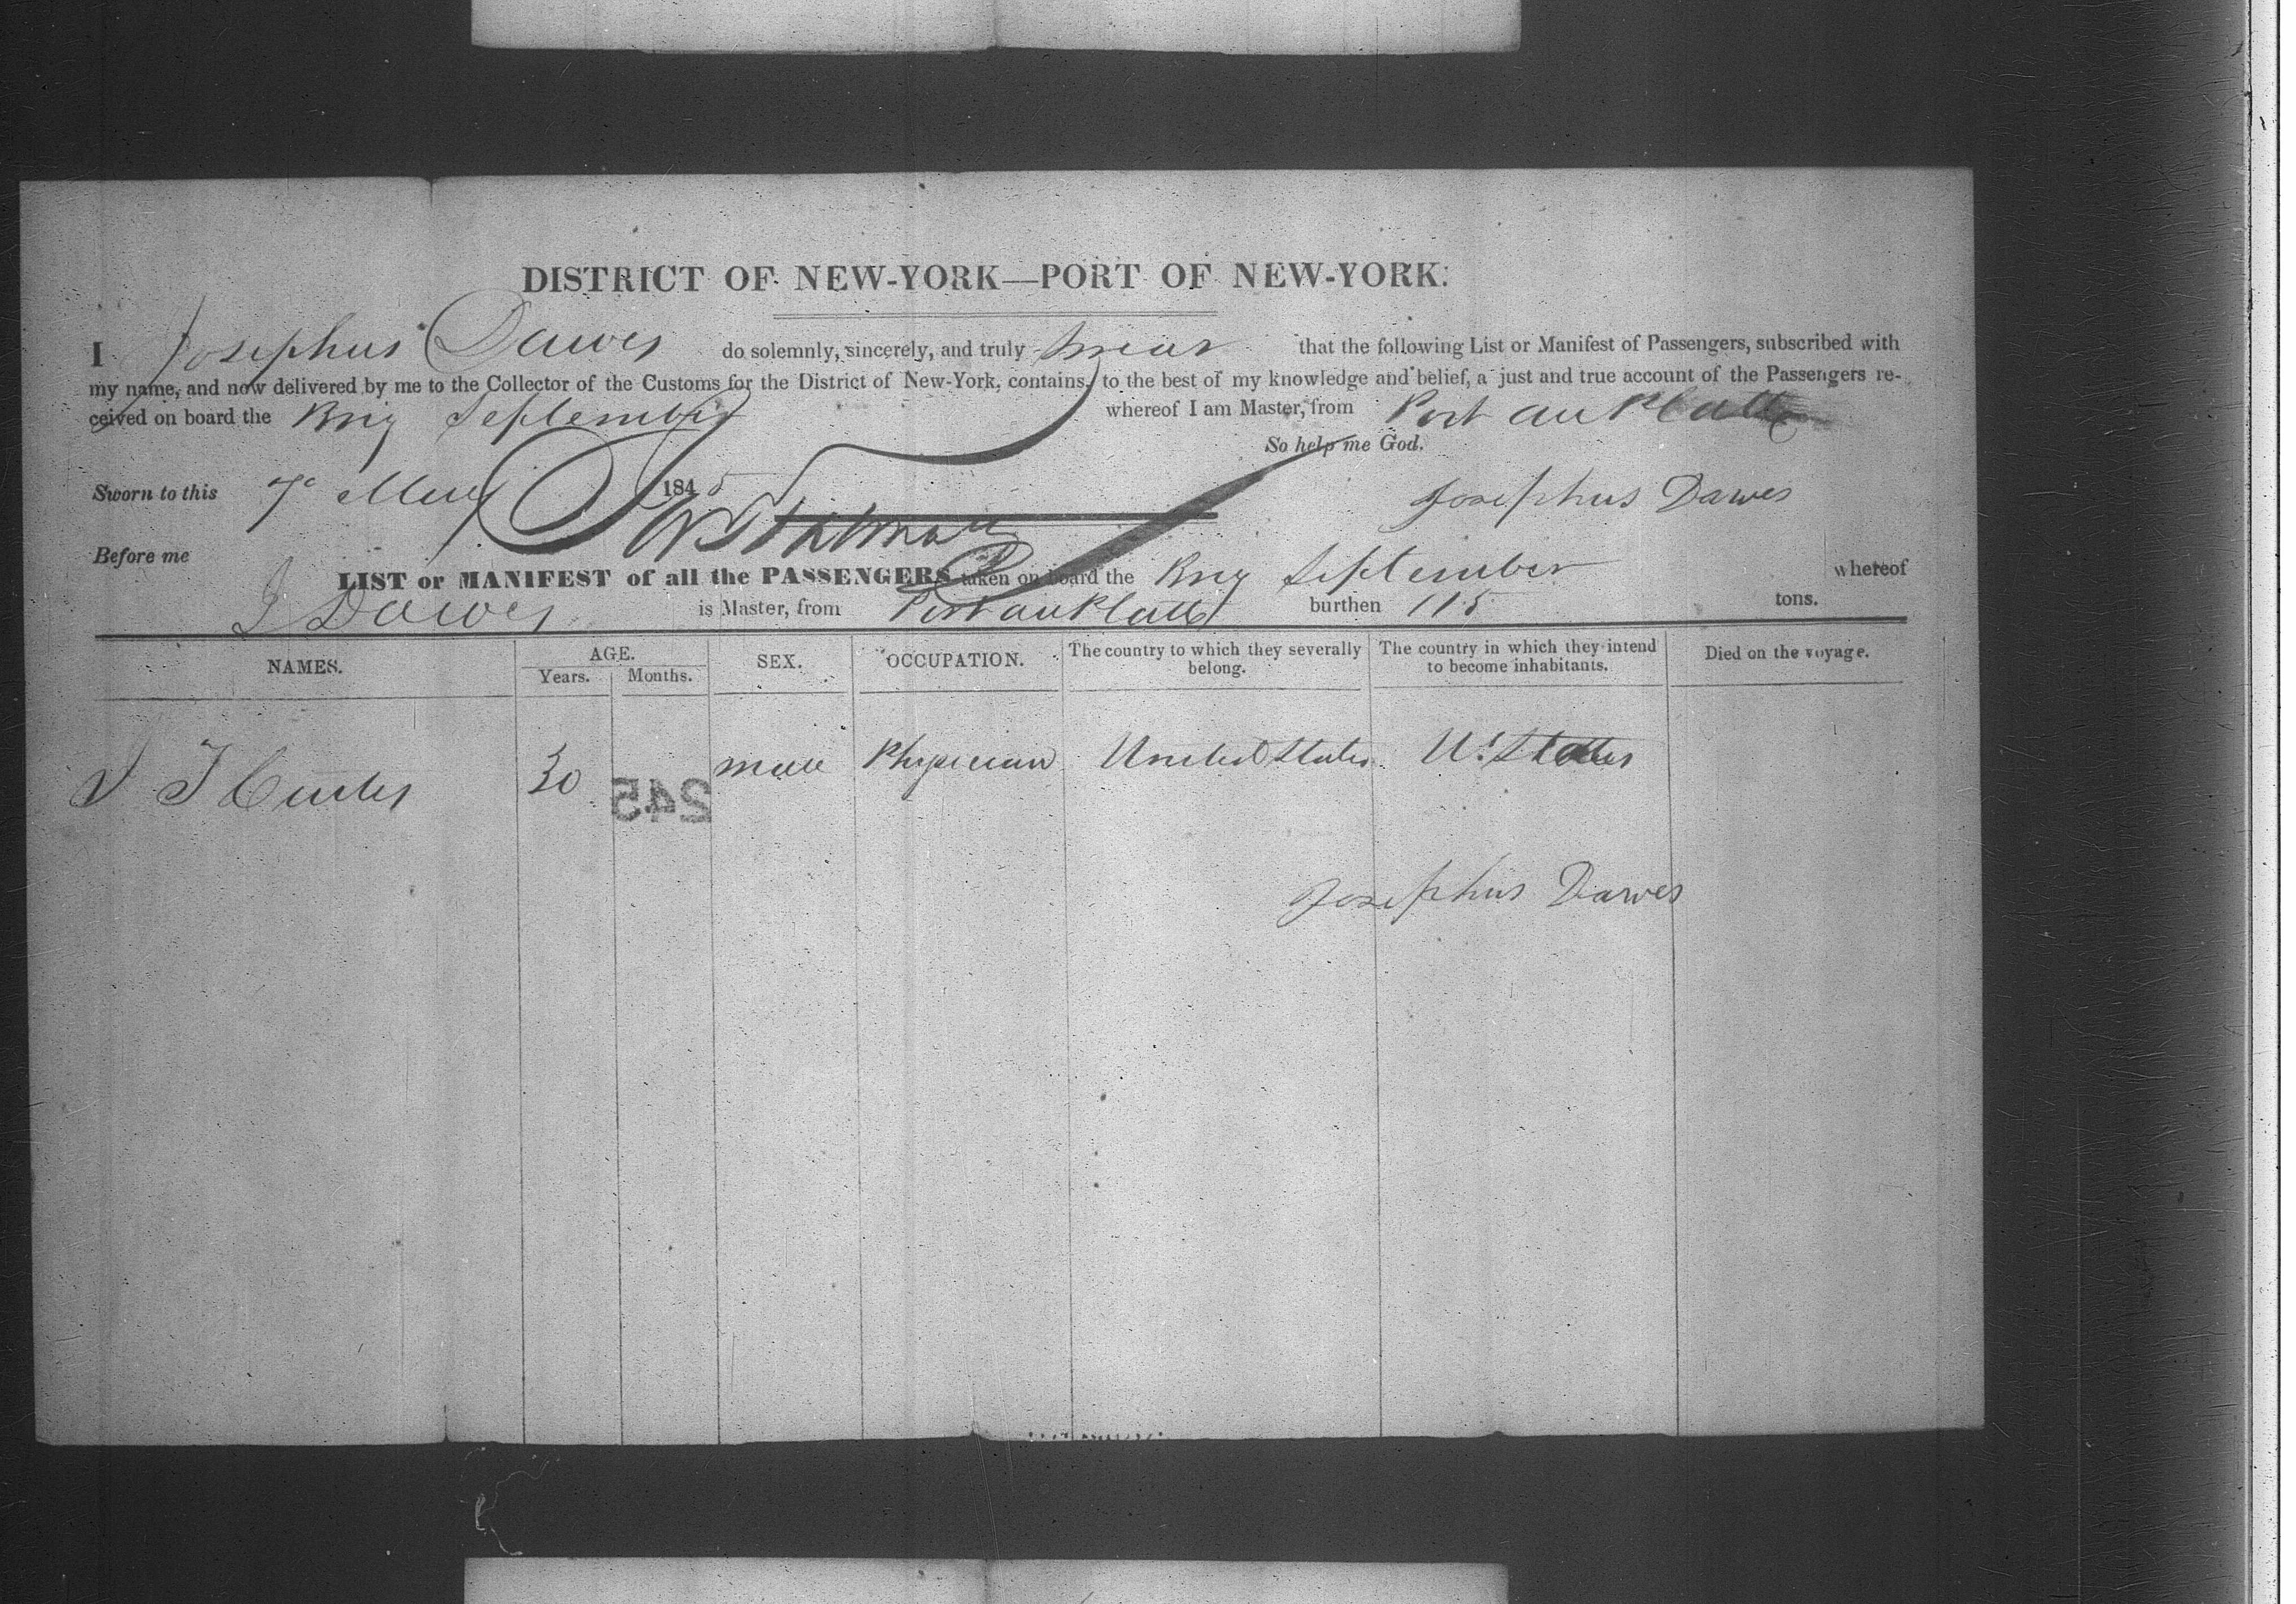 DISTRICT OF NEW-YORK—PORT OF NEW-YORK.
I Josephus Dawes do solemnly, sincerely, and truly swear that the following List or Manifest of Passengers, subscribed with
my name, and now delivered by me to the Collector of the Customs for the District of New-York, contains, to the best of my knowledge and belief, a just and true account of the Passengers re-
ceived on board the Brig September whereof I am Master, from Port au Platte
So help me God.
Sworn to this 7 May 1845 Josephus Dawes
Before me
LIST or MANIFEST of all the PASSENGERS taken on board the Brig September whereof
J Dawes is Master, from Port au Platte burthen 115 tons.
NAMES. AGE. Years. Months. SEX. OCCUPATION. The country to which they severally belong. The country in which they intend to become inhabitants. Died on the voyage.
30 male Physician United States U. States
245
Josephus Dawes